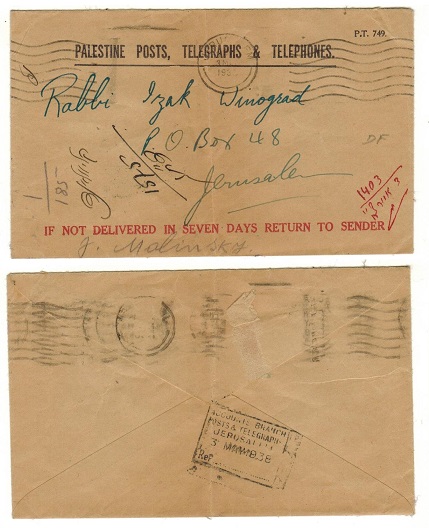 P.T. 749.
PALESTINE POSTS, TELEGRAPHS & TELEPHONES.
Rabbi Izak Winograd
P.O. Box 48
Jerusalem
DF
1403
IF NOT DELIVERED IN SEVEN DAYS RETURN TO SENDER
J. Malinsky.
BRANCH
POSTS & TELEGRAPHS
JERUSALEM
3 1938
Ref